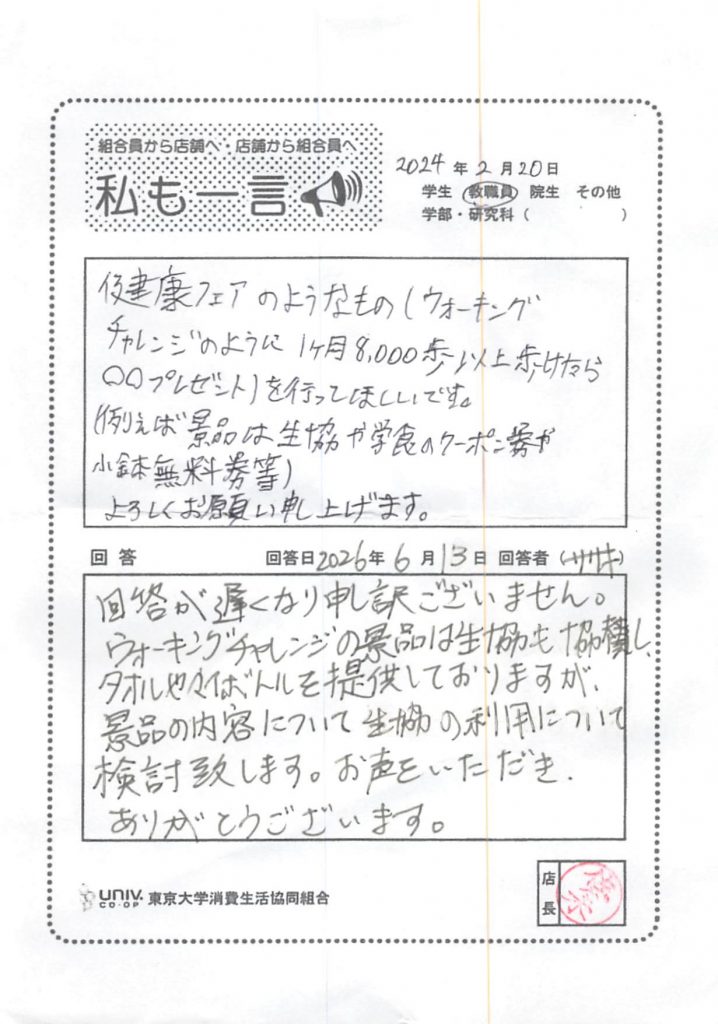 組合員から店舗へ・店舗から組合員へ
私も一言
2024年2月20日
学生 教職員 院生 その他
学部・研究科( )
健康フェアのようなもの(ウォーキング
チャレンジのように1ヶ月8,000歩以上歩けたら
〇〇プレゼント)を行ってほしいです。
(例えば景品は生協や学食のクーポン券や
小鉢無料券等)
よろしくお願い申し上げます。
回答 回答日2026年6月13日 回答者(ササキ)
回答が遅くなり申し訳ございません。
ウォーキングチャレンジの景品は生協も協賛し、
タオルやマイボトルを提供しておりますが、
景品の内容について生協の利用について
検討致します。お声をいただき、
ありがとうございます。
UNIV.
CO-OP 東京大学消費生活協同組合
店長